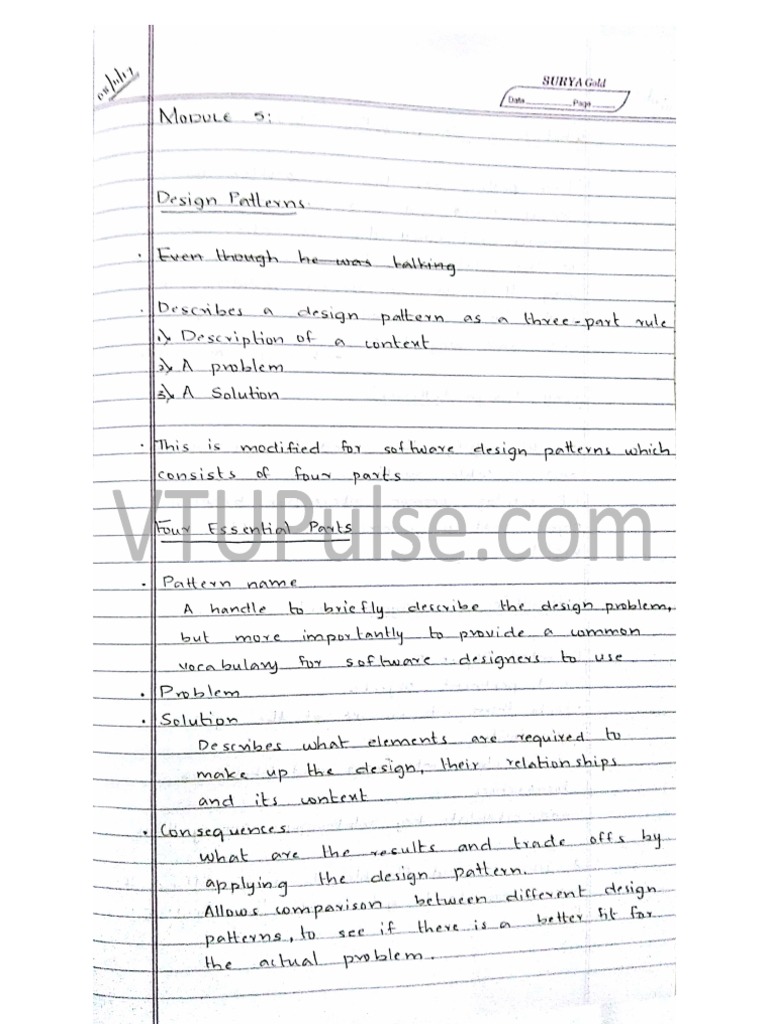 SURYA Gold
Date Page
MODULE 5:
Design Patterns
. Even though he was talking
. Describes a design pattern as a three-part rule
1) Description of a context
2) A problem
3) A Solution
. This is modified for software design patterns which
consists of four parts
VTUPulse.com
Four Essential Parts
. Pattern name
A handle to briefly describe the design problem,
but more importantly to provide a common
vocabulary for software designers to use
. Problem
. Solution
Describes what elements are required to
make up the design, their relationships
and its context
. Consequences.
What are the results and trade offs by
applying the design pattern.
Allows comparison between different design
patterns, to see if there is a better fit for
the actual problem.